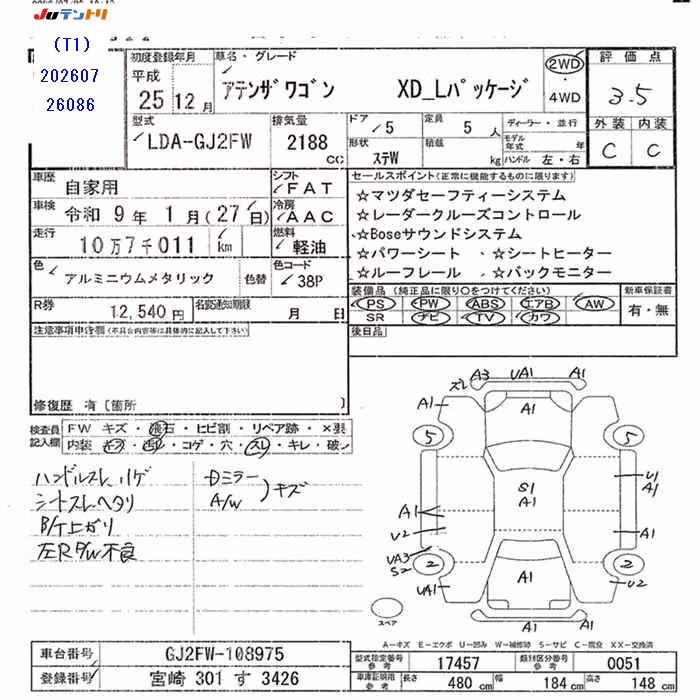 JUテントリ
(T1)
202607
26086
初度登録年月
平成
25年12月
車名・グレード
アテンザワゴン XD_Lパッケージ
2WD
・
4WD
評価点
3.5
外装 内装
C C
型式
LDA-GJ2FW
排気量
2188
CC
ドア
5
形状
ステW
定員
5人
積載
kg
ディーラー・並行
モデル年式 年
ハンドル 左・右
車歴
自家用
シフト
FAT
車検
令和 9年 1月(27日)
冷房
AAC
走行
10万7千011 km
燃料
軽油
色
アルミニウムメタリック
色替
色コード
38P
R券
12,540円
名変通知期限
月 日
セールスポイント(正常に機能するものに限ります)
☆マツダセーフティーシステム
☆レーダークルーズコントロール
☆Boseサウンドシステム
☆パワーシート ☆シートヒーター
☆ルーフレール ☆バックモニター
装備品 (純正品に限り○をつけてください)
PS PW ABS エアB AW
SR ナビ TV カワ
新車保証書
有・無
注意事項申告欄(不具合内容等は具体的に記入して下さい)
後日品
修復歴 有 [箇所 ]
検査員記入欄
FW キズ・飛石・ヒビ割・リペア跡・×張
内装 キズ・汚れ・コゲ・穴・スレ・キレ・破れ
ハンドルスレ ハゲ
シートスレヘタリ
B/T上ガリ
左R P/W不良
Dミラー
A/W
キズ
A3 UA1 A1
ズレ
A1 A1 A1
5 5
S1
A1
U1
A1
A1
U2
A1
UA3
S2
2 2
UA1 A1 U2
A1 A1
スペア
A-キズ E-エクボ U-凹み W-補修跡 S-サビ C-腐食 XX-交換済
車台番号
GJ2FW-108975
登録番号
宮崎 301 す 3426
型式指定番号
参考
17457
類別区分番号
参考
0051
車庫証明用
参考
長さ 480 cm 幅 184 cm 高さ 148 cm